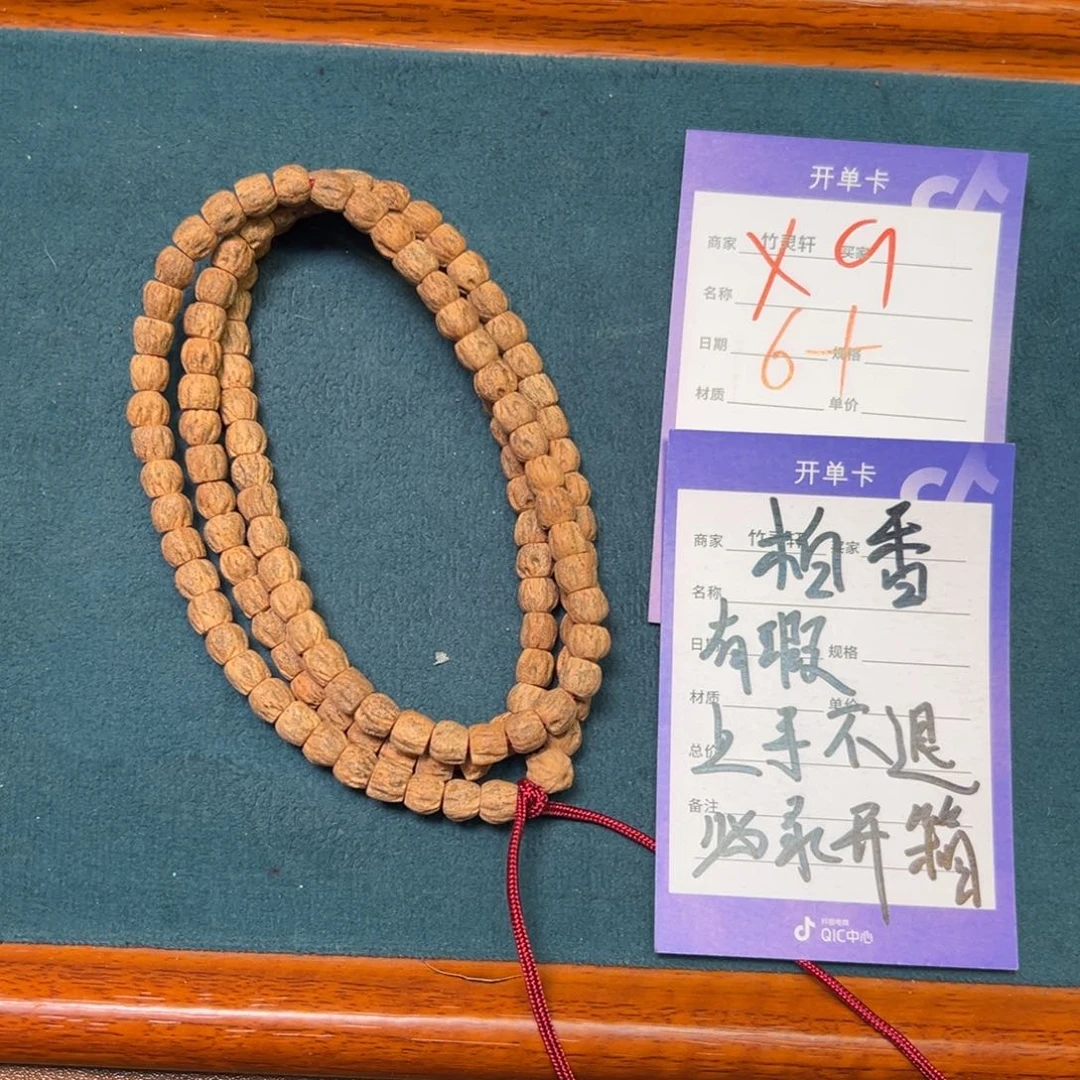 开单卡
商家 竹灵轩 买家
X9
名称
6+
日期 规格
材质 单价
开单卡
商家 竹灵轩 买家
柏香
名称
有瑕
日期 规格
材质 单价
上手不退
总价
备注
必录开箱
抖音电商
QIC中心